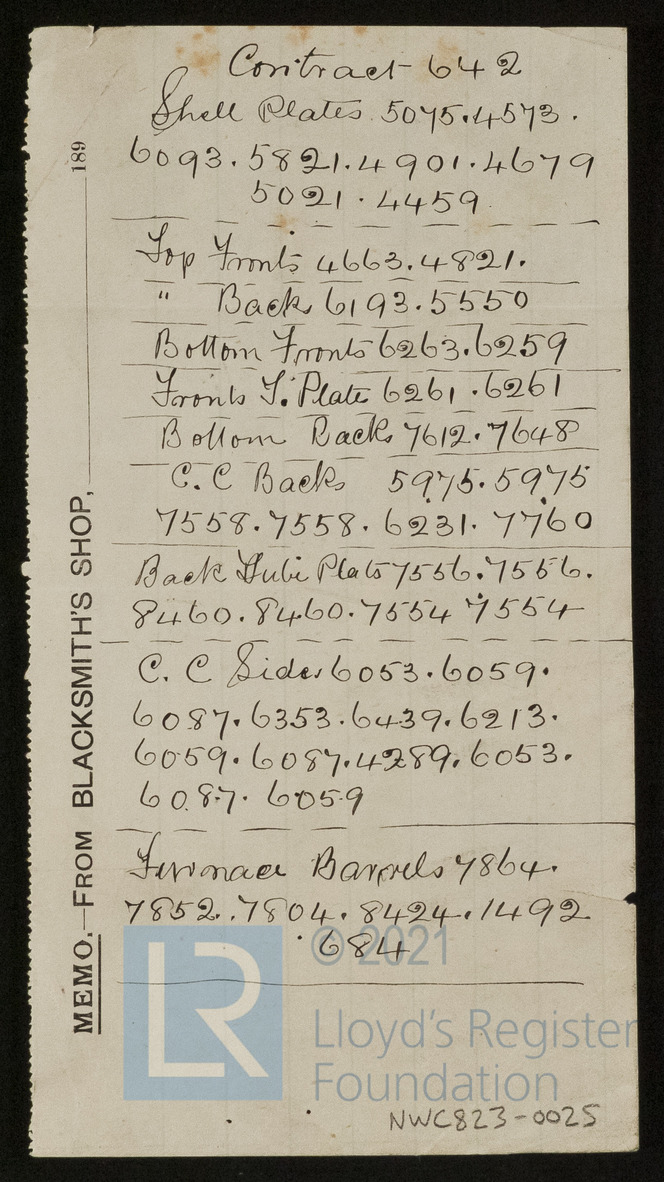 Contract 642
Shell Plates 5075.4573.
6093.5821.4901.4679
5021.4459
Top Fronts 4663.4821.
" Backs 6193.5550
Bottom Fronts 6263.6259
Fronts T. Plate 6261.6261
Bottom Backs 7612.7648
C.C Backs 5975.5975
7558.7558.6231.7760
Back Tube Plats 7556.7556.
8460.8460.7554 7554
C.C Sides 6053.6059.
6087.6353.6439.6213.
6059.6087.4289.6053.
6087.6059
Furnace Barrels 7864.
7852.7804.8424.1492
684
MEMO.—FROM BLACKSMITH'S SHOP, 189
© 2021
LR
Lloyd's Register
Foundation
NWC823-0025